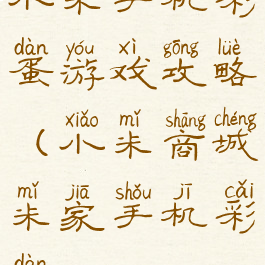 手机彩
dàn yóu xì gōng lüè
蛋游戏攻略
xiǎo mǐ shāng chéng
（小米商城
mǐ jiā shǒu jī cǎi
米家手机彩
dàn